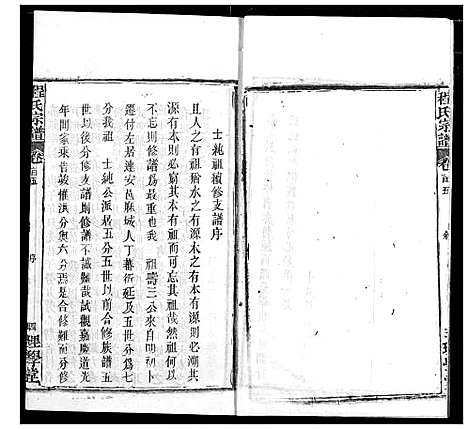 程氏宗譜
卷首五
士純祖續修支譜序
且人之有祖猶水之有源木之有本有源則必溯其
源有本則必窮其本有祖而可忘其祖哉然祖何以
不忘則修譜為最重也我 祖壽三公來自明初卜
遷付左居連安邑麻城人丁蕃衍延及五世分為七
分我祖 士純公派居五分五世以前合修族譜五
世以後分修支譜則修譜不誠難哉試觀嘉慶道光
年間家乘昔被
合修難而分修
序
四
理學芘
程氏宗譜
卷首五